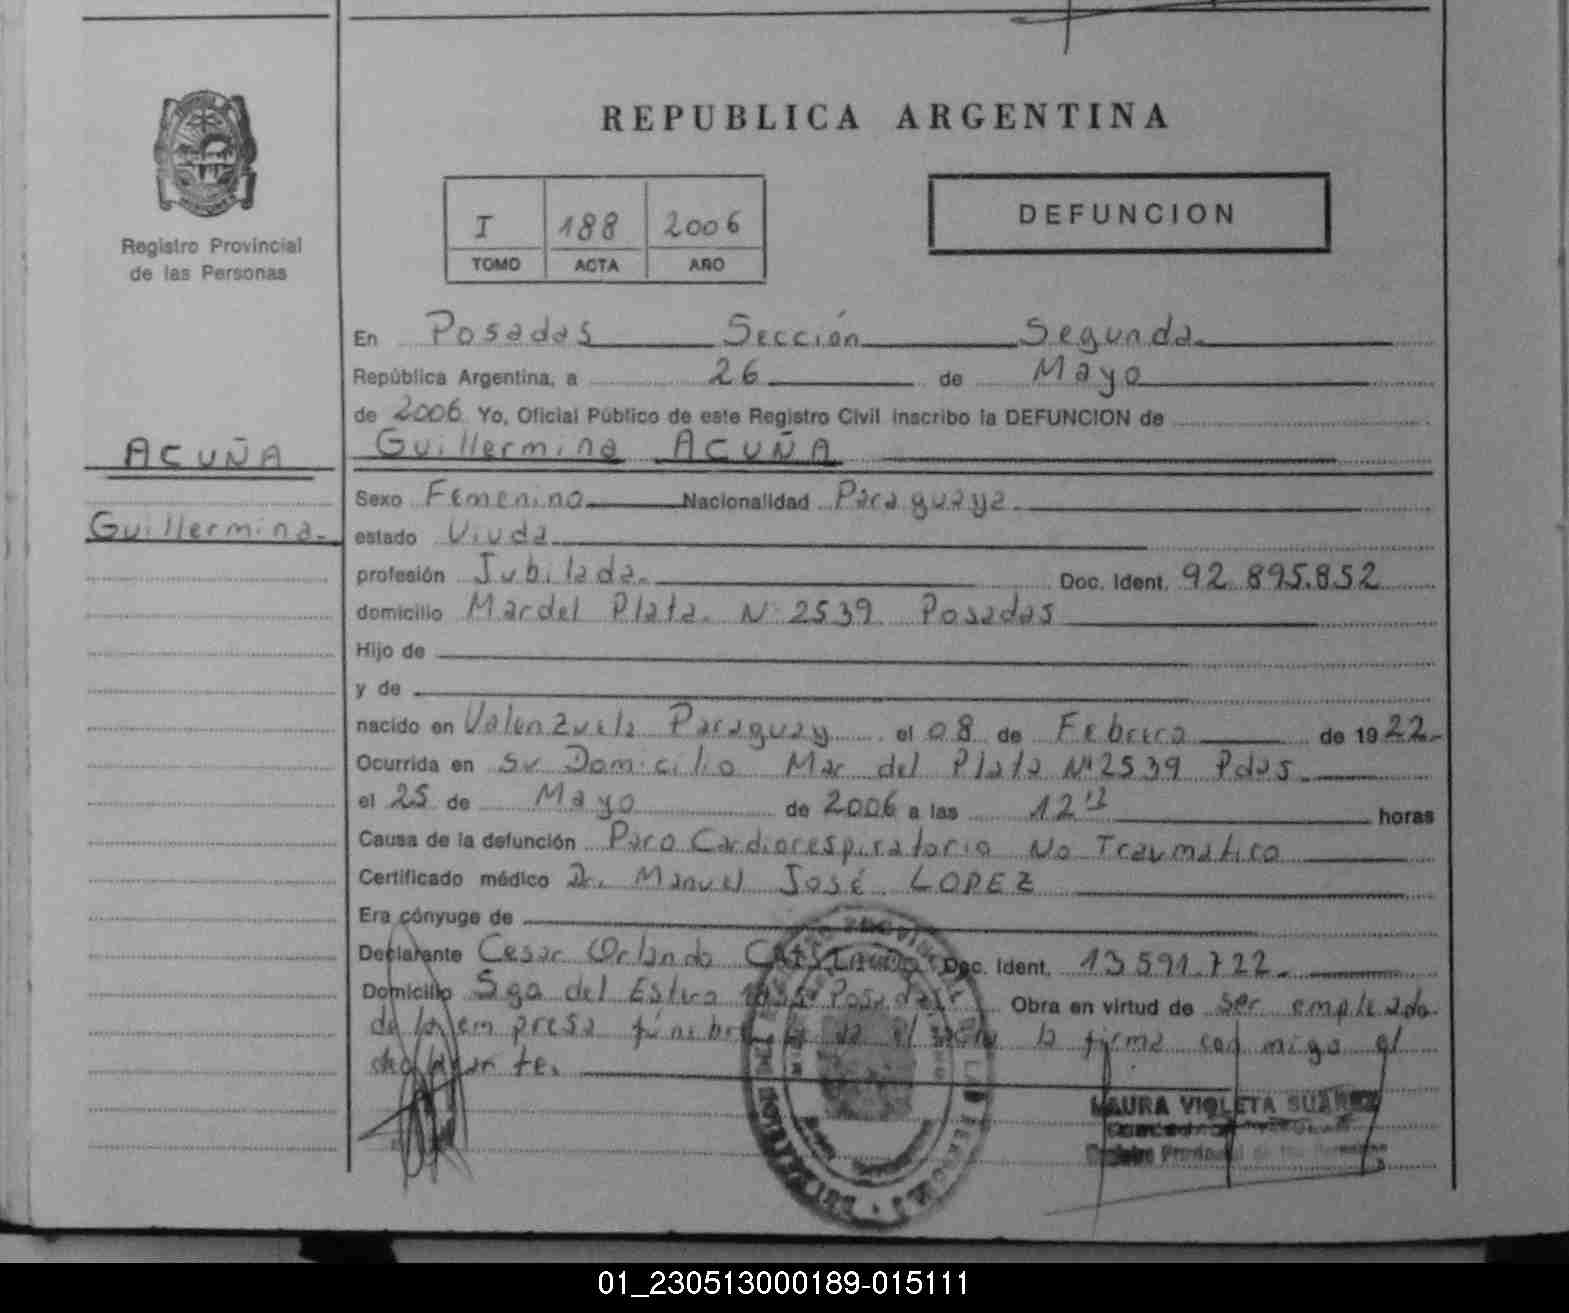 REPUBLICA ARGENTINA
I 188 2006
TOMO ACTA AÑO
DEFUNCION
Registro Provincial
de las Personas
ACUÑA
Guillermina.
En Posadas Sección Segunda.
República Argentina, a 26 de Mayo
de 2006 Yo, Oficial Público de este Registro Civil inscribo la DEFUNCION de
Guillermina ACUÑA
Sexo Femenino Nacionalidad Paraguaya.
estado Viuda
profesión Jubilada. Doc. Ident. 92.895.852
domicilio Mar del Plata. Nº 2539 Posadas
Hijo de
y de
nacido en Valenzuela Paraguay el 08 de Febrero de 1922.
Ocurrida en su Domicilio Mar del Plata Nº 2539 Pdas.
el 25 de Mayo de 2006 a las 12 horas
Causa de la defunción Paro Cardiorespiratorio No Traumatico
Certificado médico Dr. Manuel José LOPEZ
Era cónyuge de
Declarante Cesar Orlando Doc. Ident. 13591.722.
Domicilio Sgo del Estero Posadas Obra en virtud de ser empleado
de la empresa fúnebre la firma conmigo el
declarante.
LAURA VIOLETA SUAREZ
Registro Provincial de las Personas
01_230513000189-015111